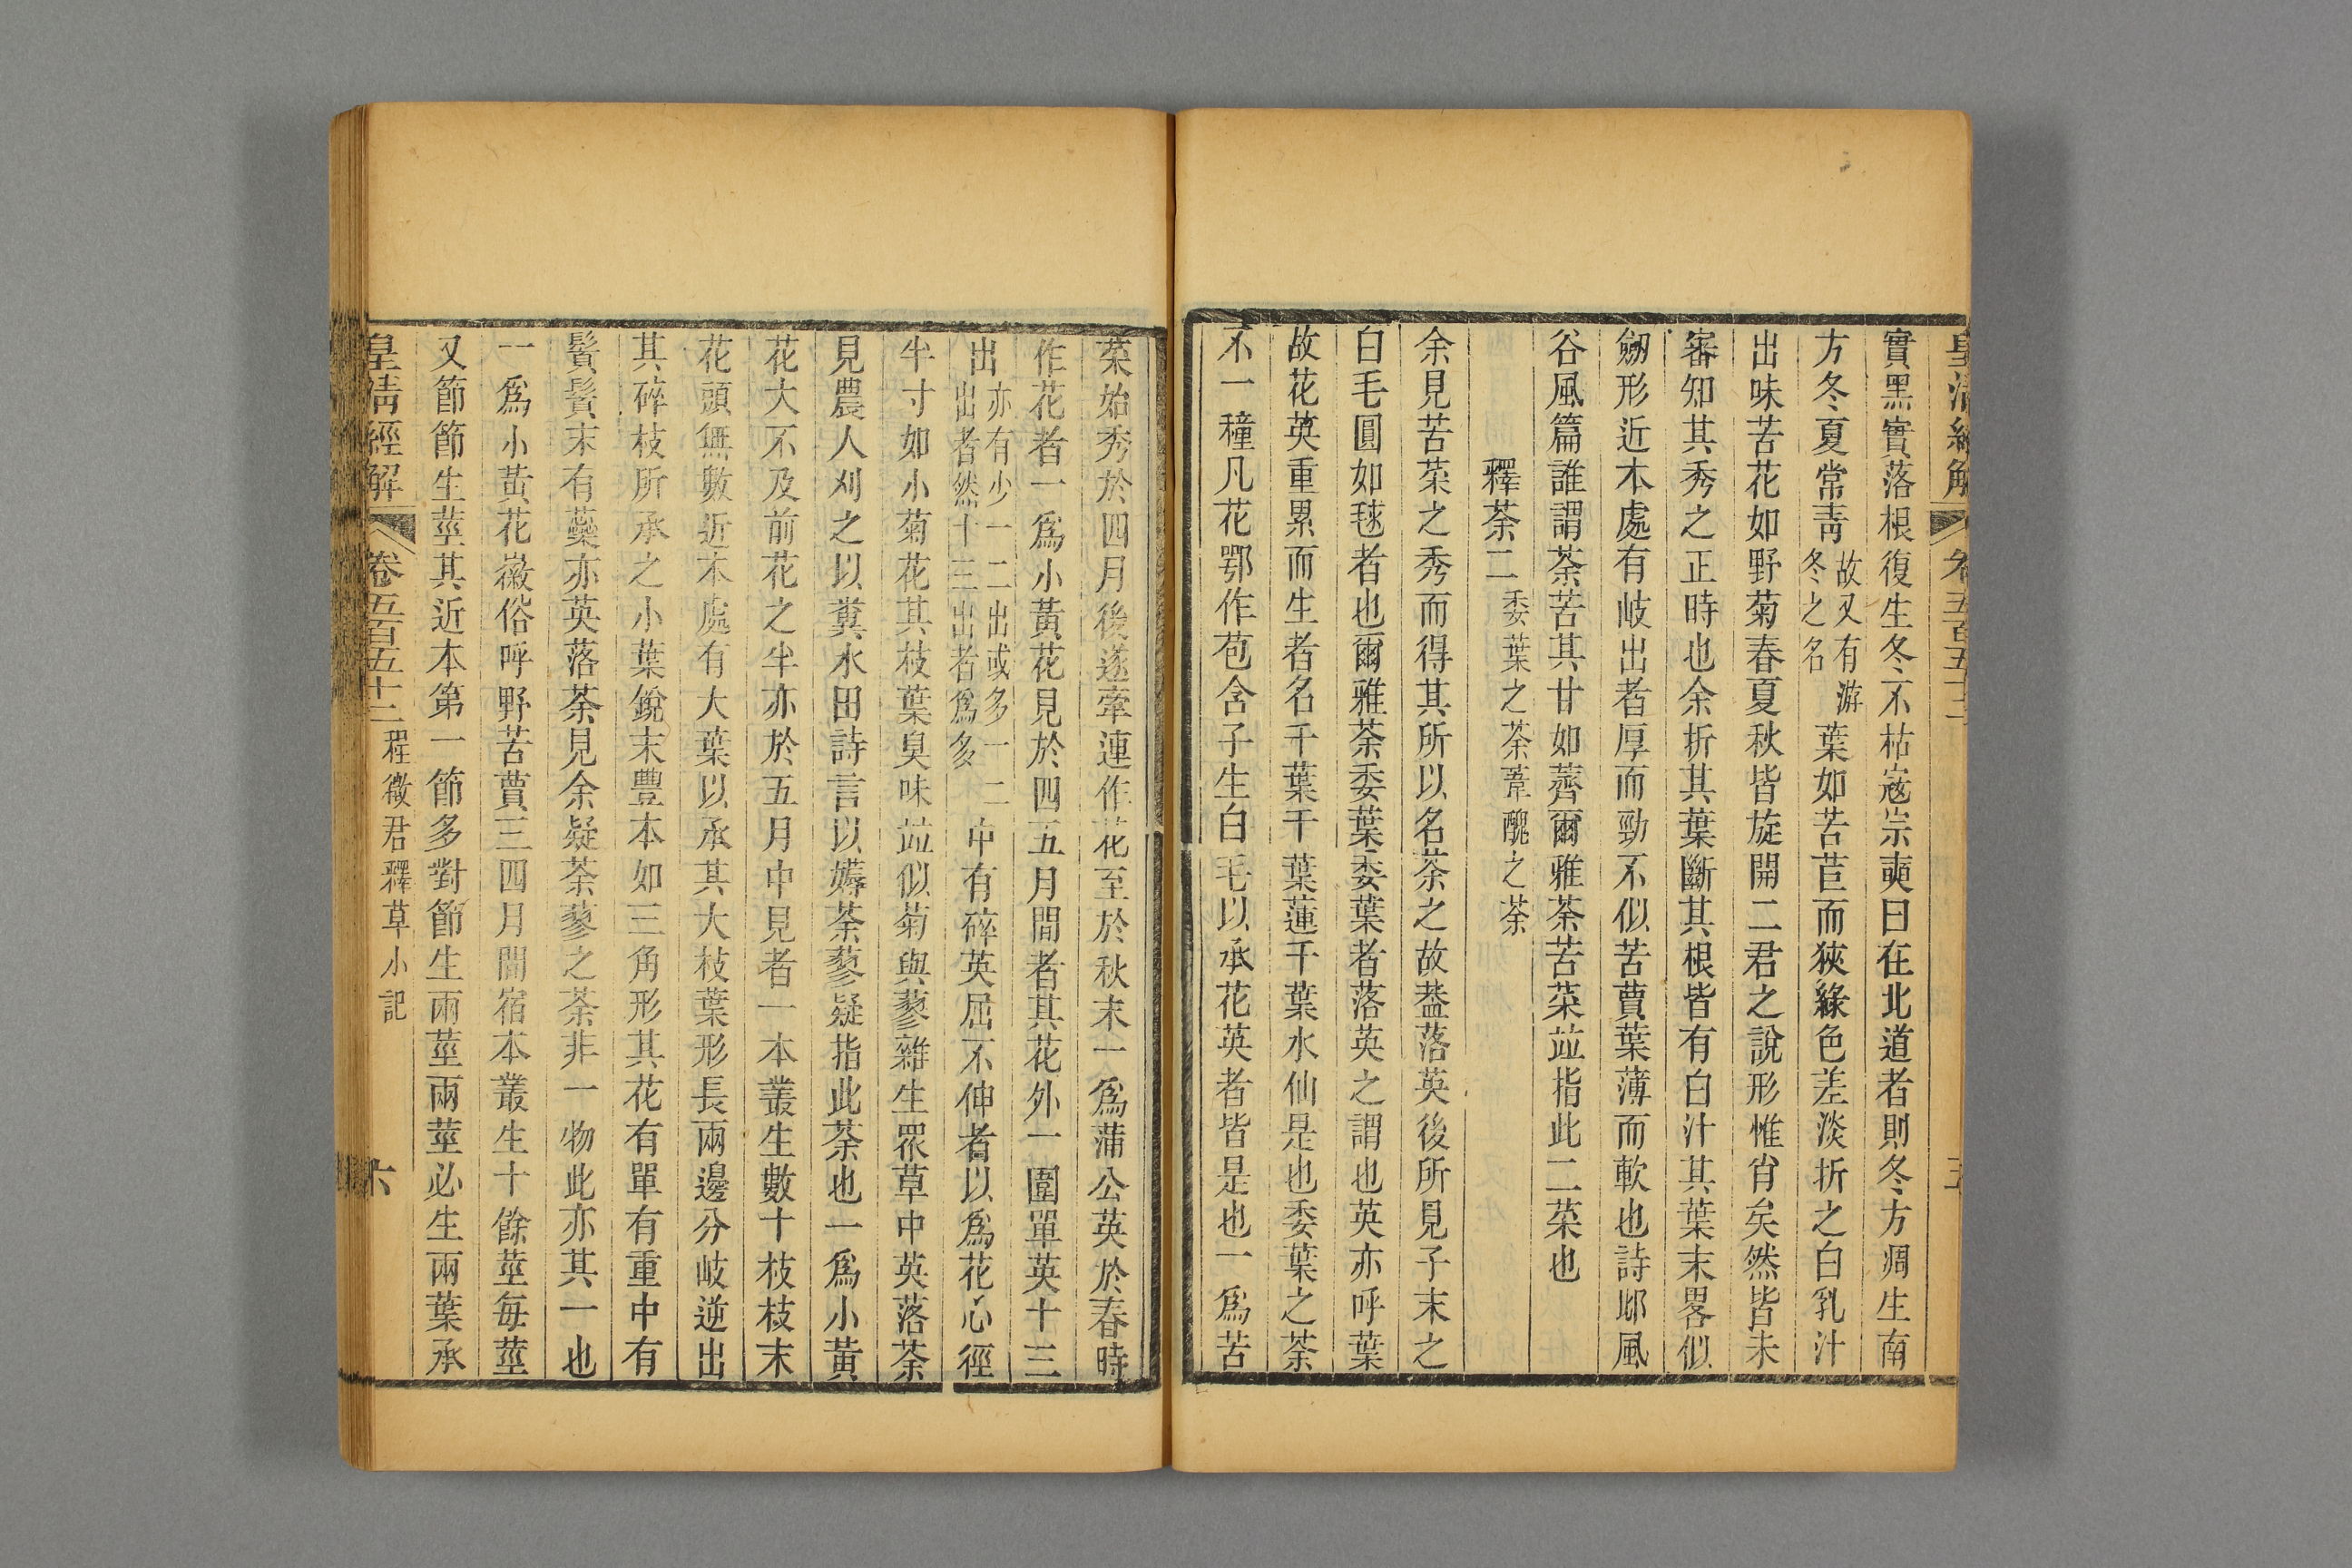 實黑實落根復生冬不枯寇宗奭曰在北道者則冬方凋生南
方冬夏常青故又有游冬之名葉如苦苣而狹綠色差淡折之白乳汁
出味苦花如野菊春夏秋皆旋開二君之說形惟肖矣然皆未
審知其秀之正時也余折其葉斷其根皆有白汁其葉末畧似
劒形近本處有岐出者厚而勁不似苦蕒葉薄而軟也詩邶風
谷風篇誰謂荼苦其甘如薺爾雅荼苦菜竝指此二菜也
釋荼二委葉之荼葦醜之荼
余見苦菜之秀而得其所以名荼之故葢落英後所見子末之
白毛圓如毬者也爾雅荼委葉委葉者落英之謂也英亦呼葉
故花英重累而生者名千葉千葉蓮千葉水仙是也委葉之荼
不一種凡花鄂作苞含子生白毛以承花英者皆是也一爲苦
菜始秀於四月後遂牽連作花至於秋末一爲蒲公英於春時
作花者一爲小黃花見於四五月閒者其花外一圍單英十三
出亦有少一二出或多一二出者然十三出者爲多中有碎英屈不伸者以爲花心徑
半寸如小菊花其枝葉臭味竝似菊與蓼雜生罧草中英落荼
見農人刈之以糞水田詩言以薅荼蓼疑指此荼也一爲小黃
花大不及前花之半亦於五月中見者一本叢生數十枝枝末
花頭無數近本處有大葉以承其大枝葉形長兩邊分岐逆出
其碎枝所承之小葉銳末豐本如三角形其花有單有重中有
鬚鬚末有蘂亦英落荼見余疑荼蓼之荼非一物此亦其一也
一爲小黃花徽俗呼野苦蕒三四月閒宿本叢生十餘莖每莖
又節節生莖其近本第一節多對節生兩莖兩莖必生兩葉承
皇清經解 卷五百五十二 程徵君釋草小記 六